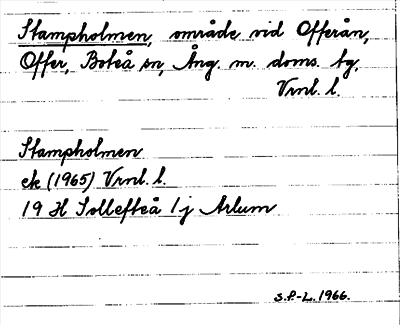 Stampholmen, område vid Offerån,
Offer, Boteå sn, Ång. m. doms. tg,
Vrnl. l.
Stampholmen
ek (1965) Vrnl. l.
19 H Sollefteå 1j Arlum
S.P.-L. 1966.